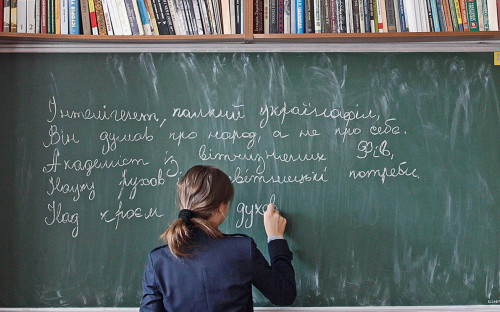 Інтелігент, палкий українофіл,
Він думав про народ, а не про себе.
Академіст із вітчизняних
Науку рухав світницькі потреби
Над краєм духов